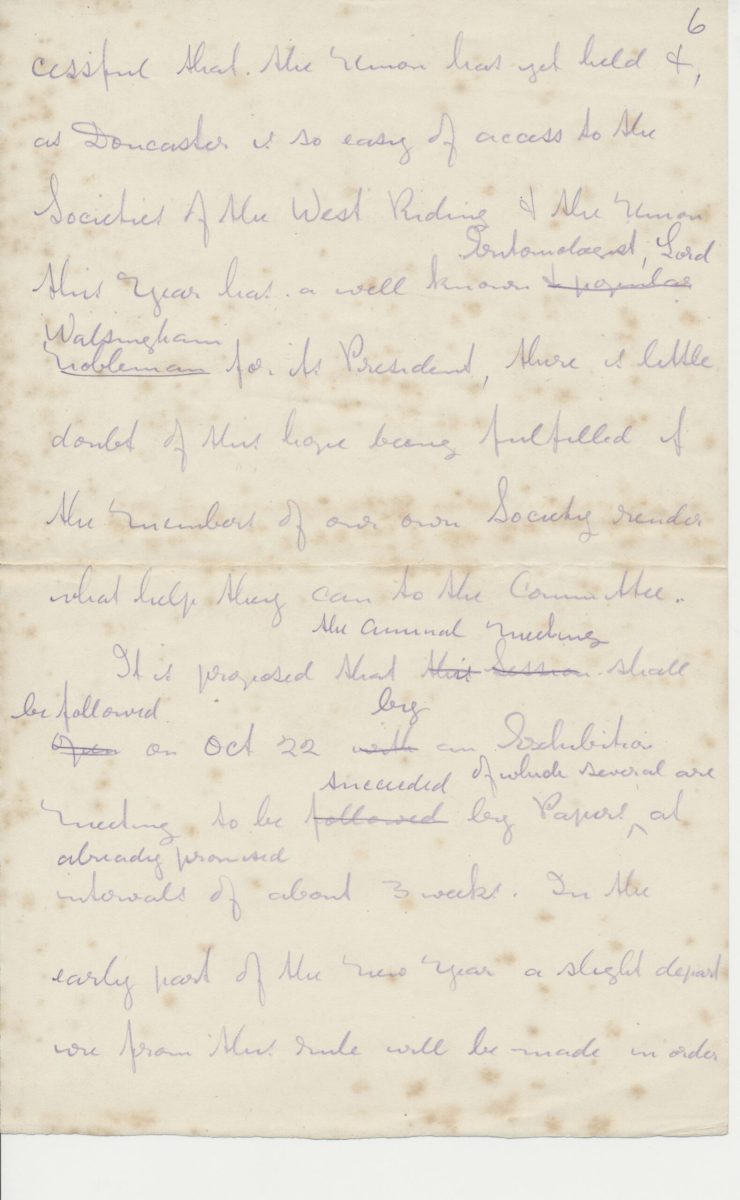 6
cessful that the Union has yet held &,
as Doncaster is so easy of access to the
Societies of the West Riding & the Union
Entomologist, Lord
this Year has a well known & popular
Walsingham
Nobleman for its President, there is little
doubt of this hope being fulfilled if
the Members of our own Society render
what help they can to the Committee.
the Annual Meeting
It is proposed that this Session shall
be followed by
Open on Oct 22 with an Exhibition
succeeded of which several are
Meeting to be followed by Papers ^ at
already promised
intervals of about 3 weeks. In the
early part of the New Year a slight depart
ure from this rule will be made in order